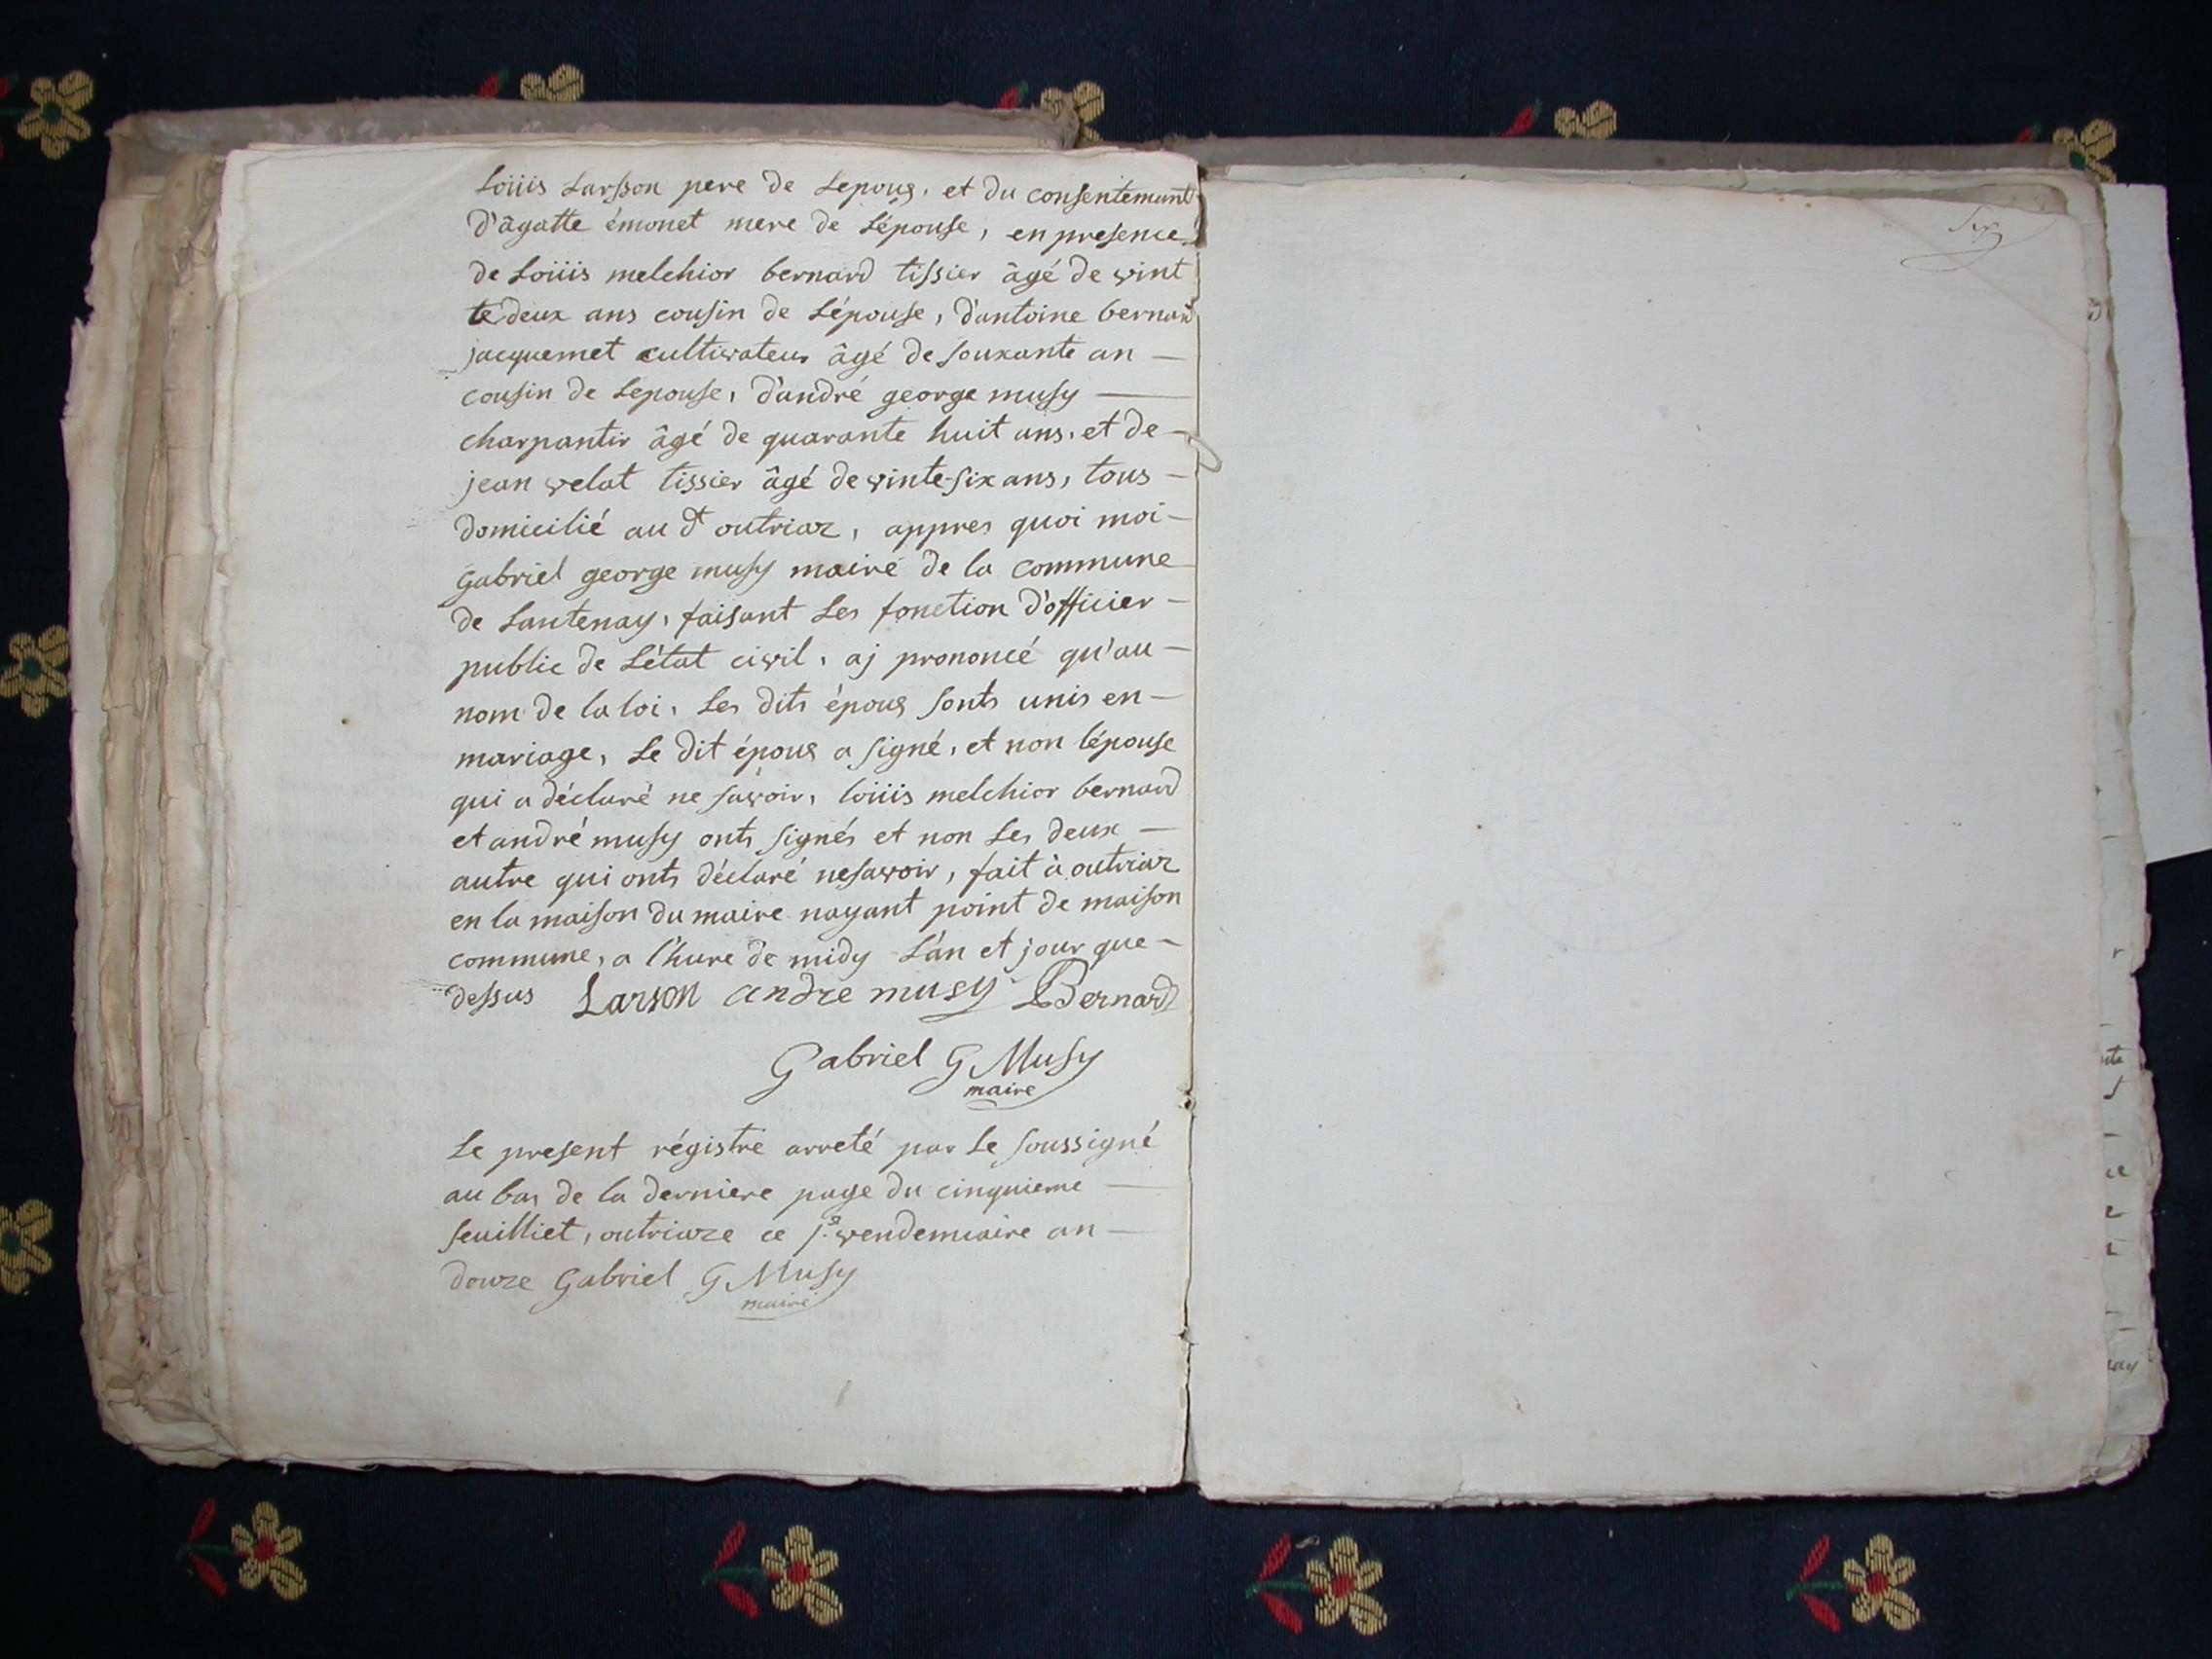 Loüis Larsson pere de Lepoux, et du consentemant
D'âgatte émonet mere de Lépouse, en presence
de Loüis melchior bernard tissier âgé de vint
te deux ans cousin de Lépouse, d'antoine bernard
jacquemet cultivateur âgé de souxante an —
cousin de Lepouse, d'andré george musy —
charpantir âgé de quarante huit ans, et de —
jean velat tissier âgé de vinte-six ans, tous —
domicilié au dt outriaz, appres quoi moi —
Gabriel george musy maire de la commune
de Lantenay, faisant Les fonction d'officier —
public de Létat civil, aj prononcé qu'au —
nom de la loi, Les dits époux sonts unis en —
mariage, Le dit époux a signé, et non lépouse
qui a déclaré ne savoir, loüis melchior bernard
et andré musy onts signés et non Les deux —
autre qui onts déclaré nesavoir, fait à outriaz
en la maison du maire nayant point de maison
commune, a l'hure de midy L'an et jour que —
dessus Larson andre musy LBernard
Gabriel G Musy
maire
Le present régistre arreté par Le soussigné
au bas de la derniere page du cinquieme —
feuilliet, outriaze ce 1er vendemiaire an —
douze Gabriel G Musy
maire
Six